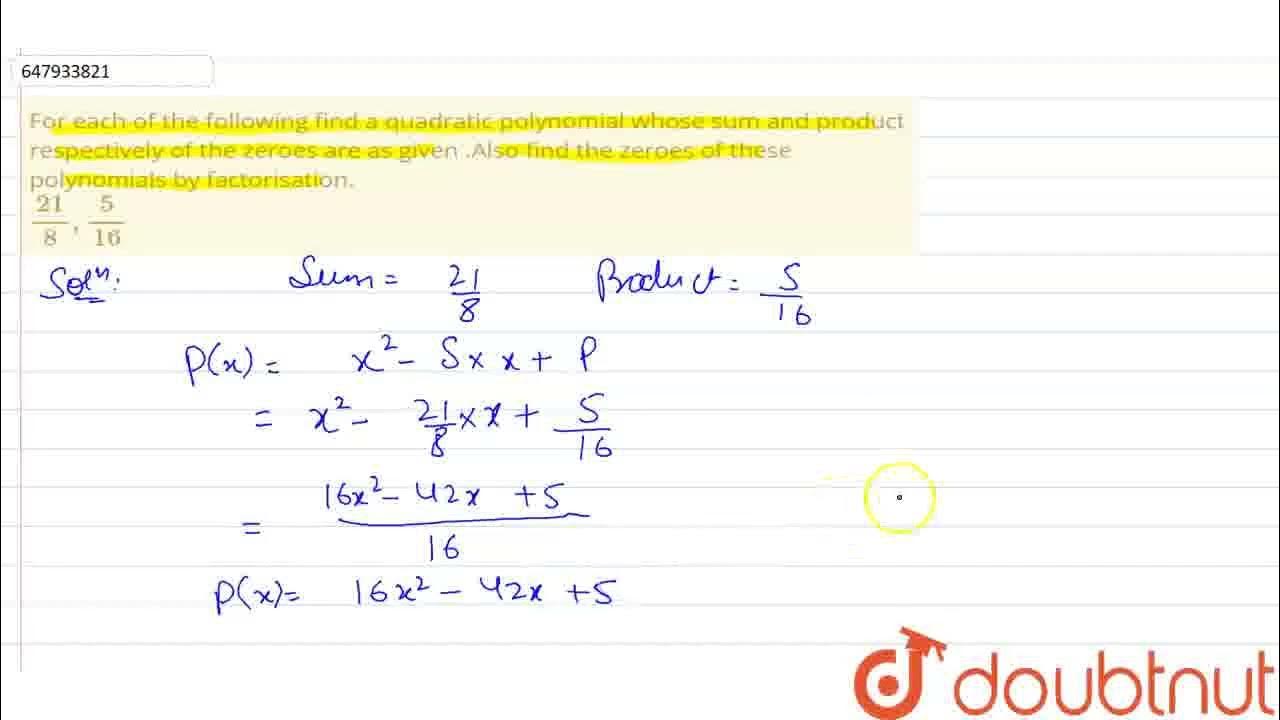 647933821
For each of the following find a quadratic polynomial whose sum and product
respectively of the zeroes are as given .Also find the zeroes of these
polynomials by factorisation.
21/8 , 5/16
Solⁿ: Sum = 21/8 Product = 5/16
P(x) = x² - S x x + P
= x² - 21/8 x x + 5/16
= (16x² - 42x + 5)/16
P(x) = 16x² - 42x + 5
doubtnut